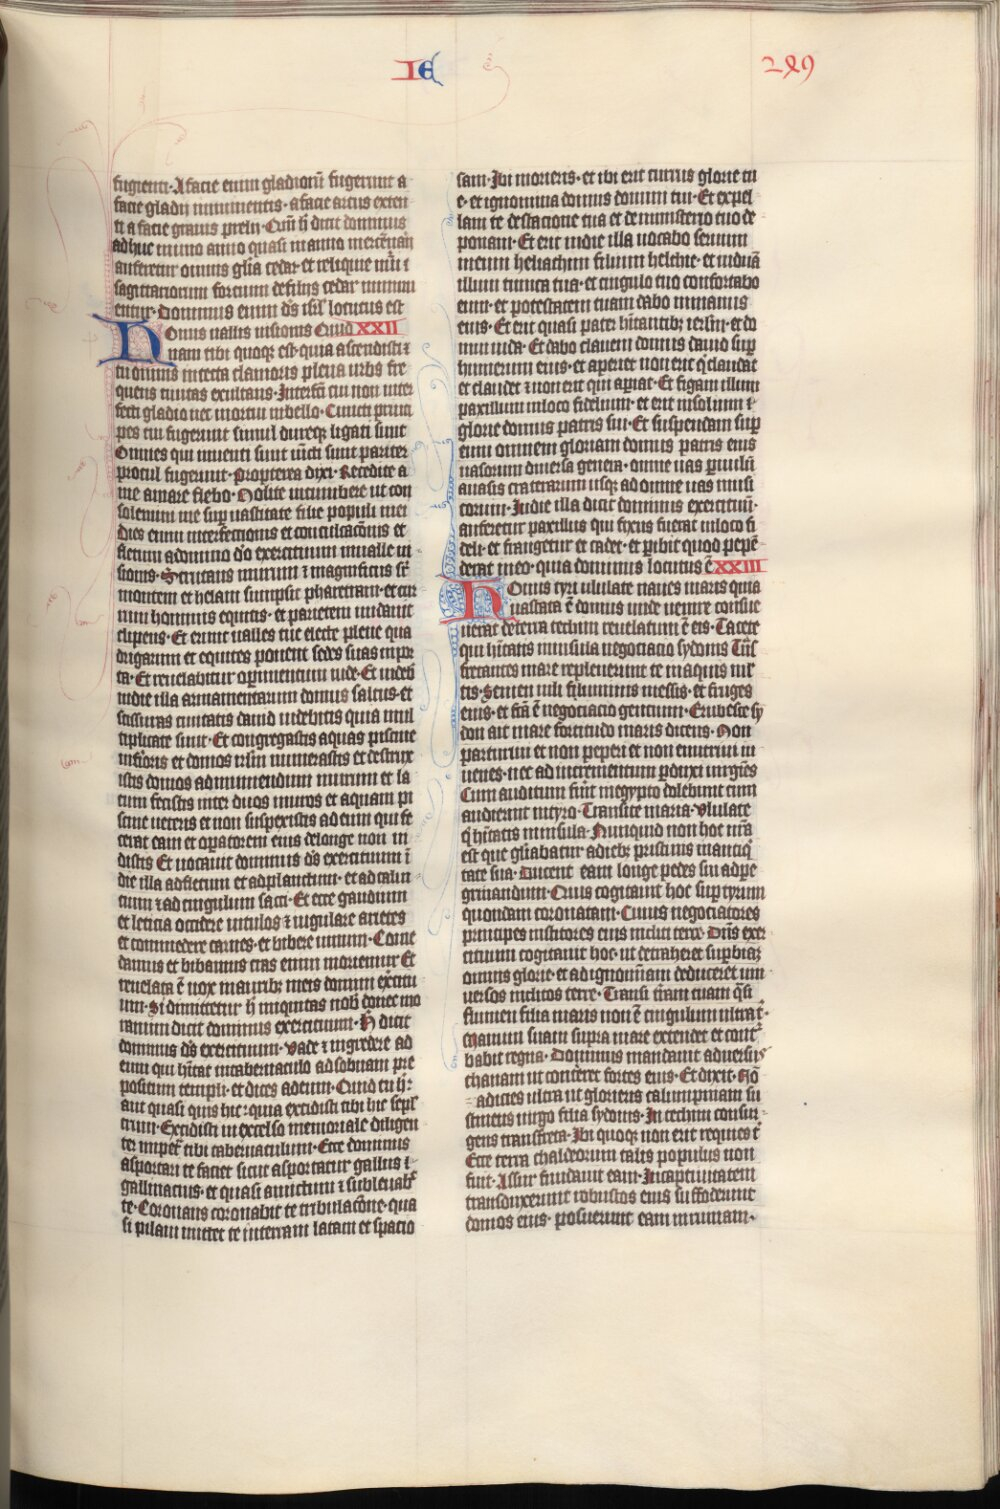 IE
289
fugienti· A facie enim gladiorū fugerunt a
facie gladii imminentis· a facie arcus exten
ti a facie grauis prelii· Qm̄ h̄ dicit dominus
adhuc in uno anno quasi in anno mercēnarij
auferetur omnis glīa cedar· et reliquie nūi ī
sagittariorum fortium de filijs cedar minuu
entur· Dominus enim dʼs isrl̄ locutus est
Onus uallis uisionis Quid XXII
nam tibi quoqꝫ est· quia ascendisti ⁊
tu omnis in tecta clamoris plena urbs fre
quens ciuitas exultans· Interfc̄i tui non inter
fecti gladio nec mortui in bello· Cuncti prin
pes tui fugerunt simul dureqꝫ ligati sunt
Omnes qui inuenti sunt uīcti sunt pariter
procul fugerunt· Propterea dixi· Recedite a
me amare flebo· Nolite incumbere ut con
solemini me sup uastitate filie populi mei
dies enim interfectionis et conculcac̄onis et
fletuum a domino dʼo exercituum in ualle ui
sionis· Scrutans murum ⁊ magnificus sr̄
montem et helam sumpsit pharetram· et cur
rum hominis equitis· et parietem nudauit
clipeus· Et erunt ualles tue electe plene qua
drigarum et equites ponent sedes suas in por
ta· Et reuelabitur opimentum iude· Et uideb̄
in die illa armamentarium domus saltus· et
scissuras ciuitatis dauid uidebitis quia mul
tiplicate sunt· Et congregastis aquas piscine
inf̄ioris et domos irl̄m numerastis et destrux
istis domos ad muniendum murum et la
cum fecistis inter duos muros et aquam pi
scine ueteris et non suspexistis ad eum qui fe
cerat eam et opatorem eius de longe non ui
distis Et uocauit dominus dʼs exercituum ī
die illa ad fletum et ad planctum· et ad calui
cium ⁊ ad cingulum sacci· Et ecce gaudium
et leticia occidere uitulos ⁊ iugulare arietes
et commedere carnes· et bibere uinum· Come
damus et bibamus cras enim moriemur Et
reuelata ē uox in auribꝫ meis domini ex̄citu
um· Si dimittetur h̄ iniquitas nob̄ donec mo
riamini dicit dominus exercituum· H̄ dicit
dominus dʼs exercituum· Vade ⁊ ingredere ad
eum qui h̄itat in tabernaculo ad sobnam pre
positum templi· et dices ad eum· Quid tu hʼ:
aut quasi quis hic· quia excidisti tibi hic sepl̄
crum· Excidisti in excelso memoriale diligen
ter in petʼ tibi tabernaculum· Ecce dominus
asportari te faciet sicut asportatur gallus ī
gallinacius· et quasi amictum ⁊ subleuabʼ
te· Coronans coronabit te tribulac̄one· qua
si pilam mittet te in terram latam et spacio
sam· Ibi morieris· et ibi erit currus glorie tu
e· et ignominia domus domini tui· Et expel
lam te de stacione tua et de ministerio tuo de
ponam· Et erit in die illa uocabo seruum
meum heliachim filium helchie· et induā
illum tunica tua· et cingulo tuo confortabo
eum· et potestatem tuam dabo in manus
eius· Et erit quasi pater h̄itantibꝫ ierlm̄· et do
mui iuda· Et dabo clauem domus dauid sup
humerum eius· et aperiet non erit q̇ claudat
et claudet ⁊ non erit qui apiat· Et figam illum
paxillum in loco fidelium· et erit in solium ī
glorie domus patris sui· Et suspendam sup
eum omnem gloriam domus patris eius
uasorum diuersa genera· omne uas p̄uulū
a uasis craterarum usqꝫ ad omne uas musi
corum· In die illa dicit dominus exercituū·
auferetur paxillus qui fixus fuerat in loco fi
deli· et frangetur et cadet· et pibit quod pepē
derat in eo· quia dominus locutus ē XXIII
Onus tyri ululate naues maris quia
uastata ē domus unde uenire consue
uerat de terra cethim reuelatum ē eis· Tacete
qui h̄itatis in insula negociacio sydonis Tn̄s
fretantes mare repleuerunt te in aquis ml̄
tis· Semen nili fluminis messis· et fruges
eius· et fc̄a ē negociacio gentium· Erubesce sy
don ait mare fortitudo maris dicens· Non
parturiui et non peperi et non enutriui iu
uenes· nec ad incrementum pduxi uirgīes
Cum auditum fūit in egypto dolebunt cum
audierint in tyro· Transite maria· vlulate
q̇ h̄itatis in insula· Nunquid non hoc ur̄a
est que gl̄iabatur a diebꝫ pristinis in antiq̇
tate sua· Ducent eam longe pedes sui ad pe
grinandum· Quis cogitauit hoc sup tyrum
quondam coronatam· Cuius negociatores
principes institores eius incliti terre· Dn̄s exer
cituum cogitauit hoc· ut detraheret supbiaꝫ
omnis glorie· et ad ignom̄iam deduceret uni
uersos inclitos terre· Transi tr̄am tuam q̄si
flumen filia maris non ē cingulum ultra ī·
Manum suam supra mare extendet et contʼ
babit regna· Dominus mandauit aduersus
chanaan ut cont̄eret fortes eius· Et dixit· Nō
adicies ultra ut glorieris calumpniam su
stinens uirgo filia sydonis· In cethim consur
gens transfreta· Ibi quoqꝫ non erit requies tʼ
Ecce terra chaldeorum talis populus non
fuit· Assur fundauit eam· In captiuitatem
transduxerunt robustos eius suffoderunt
domos eius· posuerunt eam in ruinam·